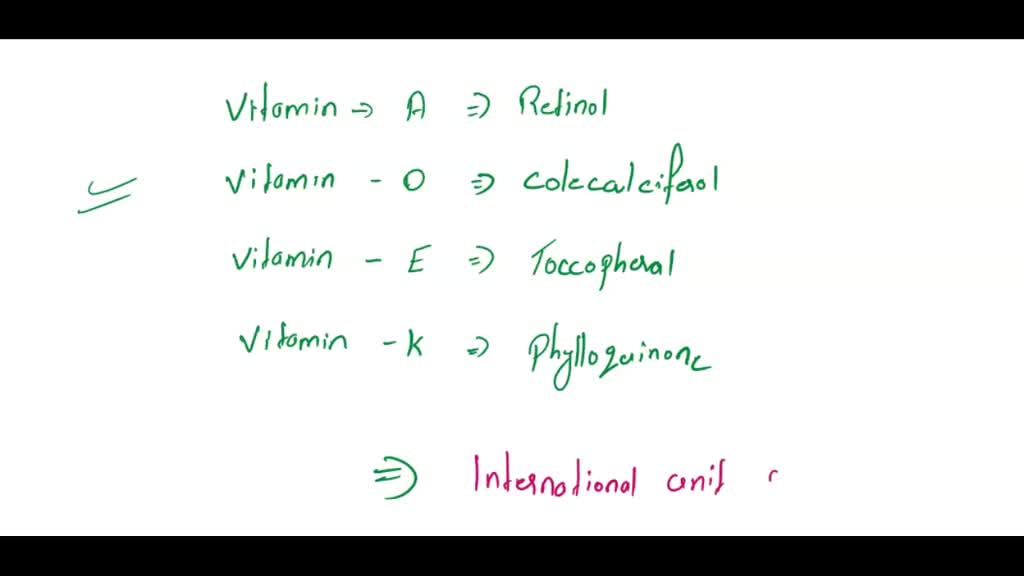 Vitamin → A ⇒ Retinol
Vitamin - D ⇒ Colecalciferol
Vitamin - E ⇒ Toccopheral
Vitamin - K ⇒ Phylloquinone
⇒ International unit